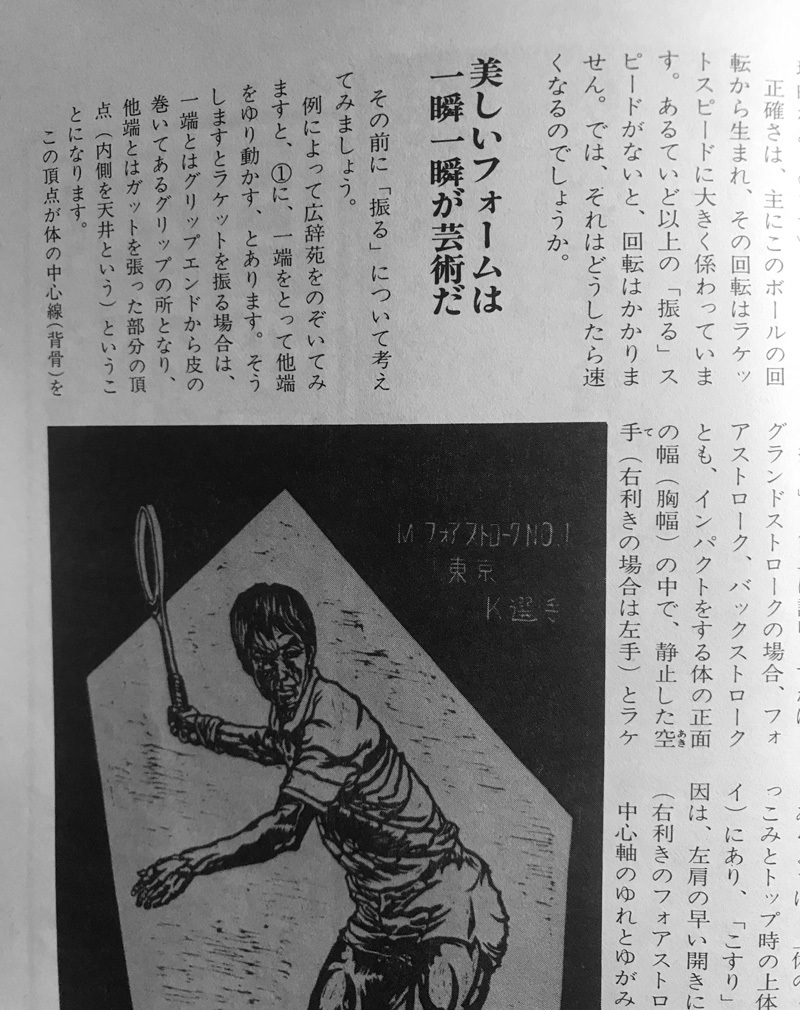 正確さは、主にこのボールの回
転から生まれ、その回転はラケッ
トスピードに大きく係わっていま
す。あるていど以上の「振る」ス
ピードがないと、回転はかかりま
せん。では、それはどうしたら速
くなるのでしょうか。
美しいフォームは
一瞬一瞬が芸術だ
その前に「振る」について考え
てみましょう。
例によって広辞苑をのぞいてみ
ますと、①に、一端をとって他端
をゆり動かす、とあります。そう
しますとラケットを振る場合は、
一端とはグリップエンドから皮の
巻いてあるグリップの所となり、
他端とはガットを張った部分の頂
点（内側を天井という）というこ
とになります。
この頂点が体の中心線（背骨）を
グランドストロークの場合、フォ
アストローク、バックストローク
とも、インパクトをする体の正面
の幅（胸幅）の中で、静止した空あき
手て（右利きの場合は左手）とラケ
っこみとトップ時の上体
イ）にあり、「こすり」
因は、左肩の早い開きに
（右利きのフォアストロ
中心軸のゆれとゆがみ
M フォアストロークNO.1
東京
K選手